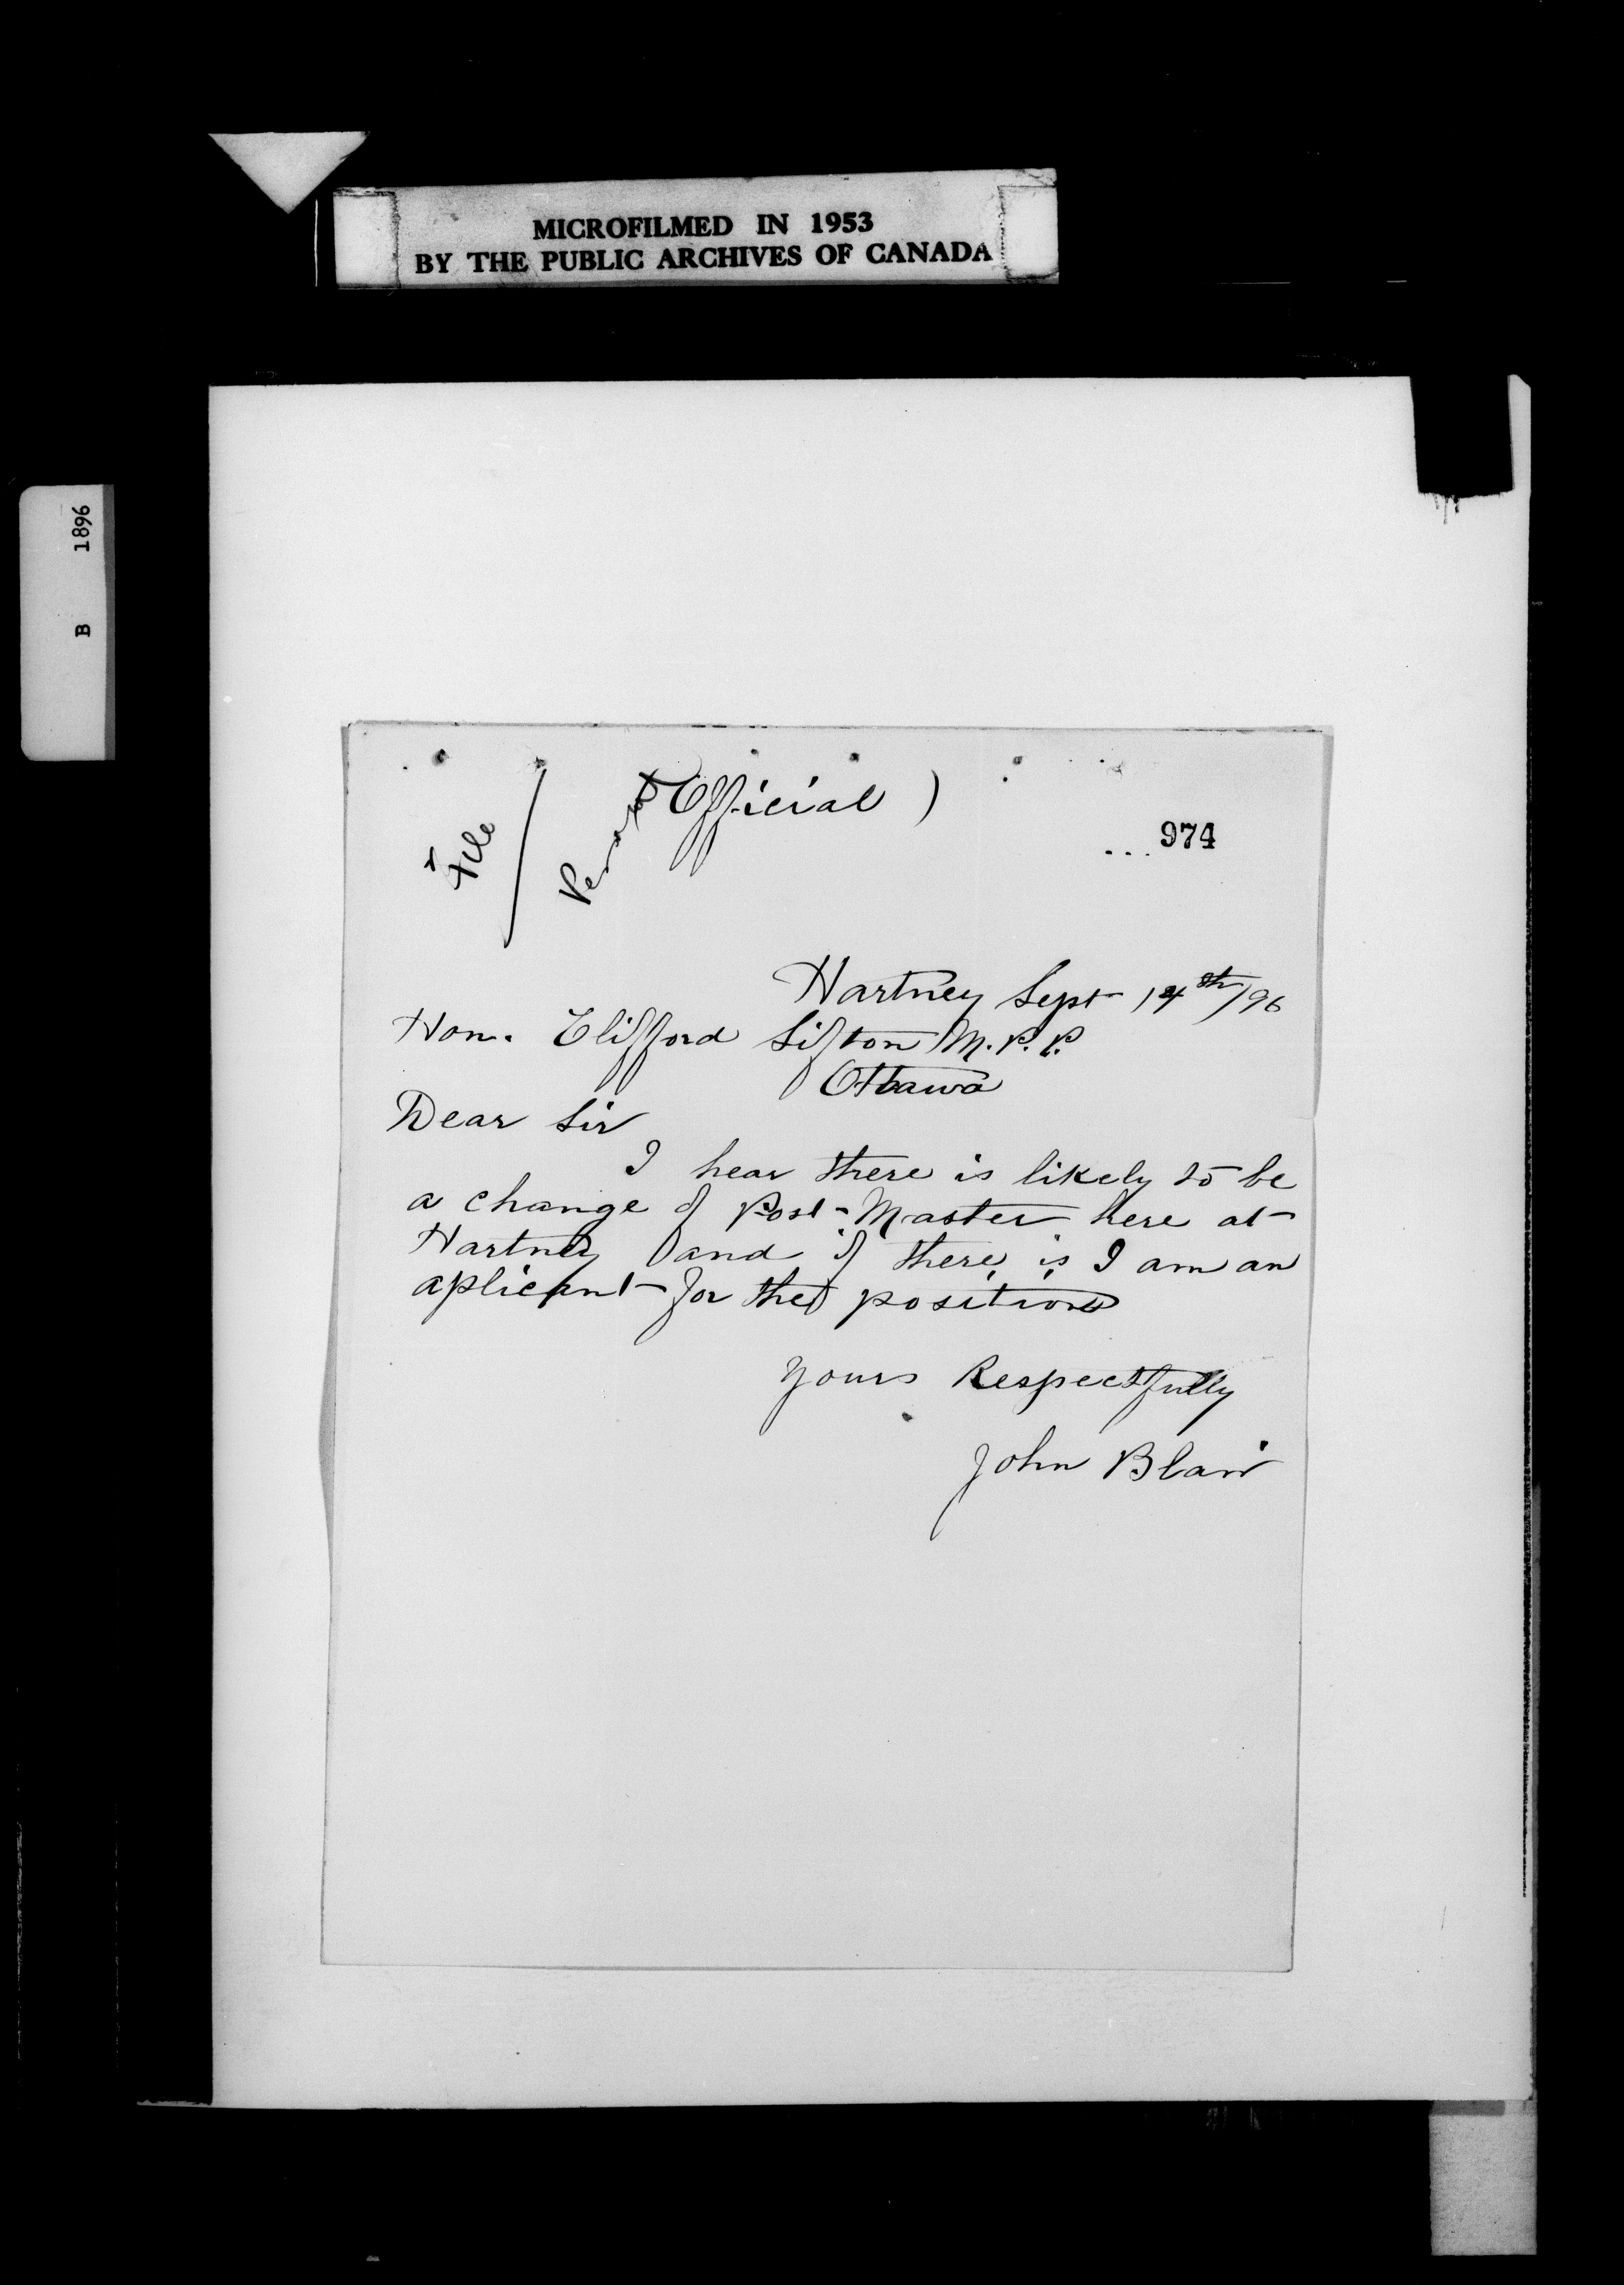 MICROFILMED IN 1953
BY THE PUBLIC ARCHIVES OF CANADA
B 1896
File
Personal
(Official)
974
Hartney Sept 14th/96
Hon. Clifford Sifton M.P.P.
Ottawa
Dear Sir
I hear there is likely to be
a change of Post-Master here at
Hartney and if there is I am an
aplicant for the position
Yours Respectfully
John Blair